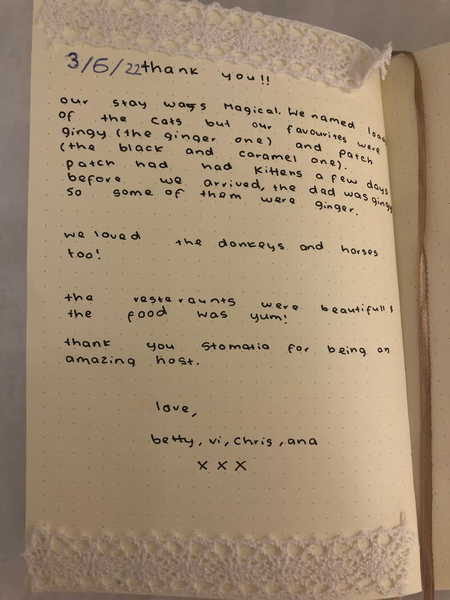 3/6/22 thank you!!
our stay was magical. We named
of the cats but our favourites were
gingy (the ginger one) and patch
(the black and caramel one).
patch had had kittens a few days
before we arrived, the dad was gingy
so some of them were ginger.
we loved the donkeys and horses
too!
the resteraunts were beautifull &
the food was yum!
thank you stomatia for being an
amazing host.
love,
betty, vi, chris, ana
x x x